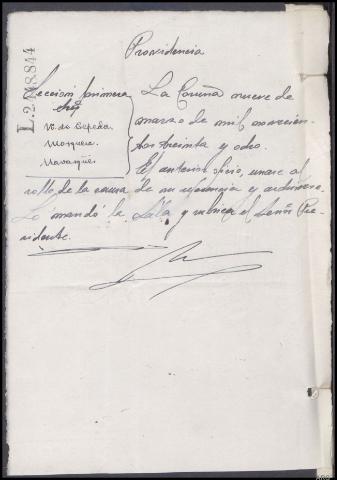 Providencia
L.2448844
Sección primera
V. de Cepeda.
Mosquera
La Coruña nueve de
marzo de mil novecien-
tos treinta y ocho.
El anterior oficio, unase al
rollo de la causa de su referencia y archivese.
Lo mandó la Sala y rubrica el Señor Pre-
sidente.